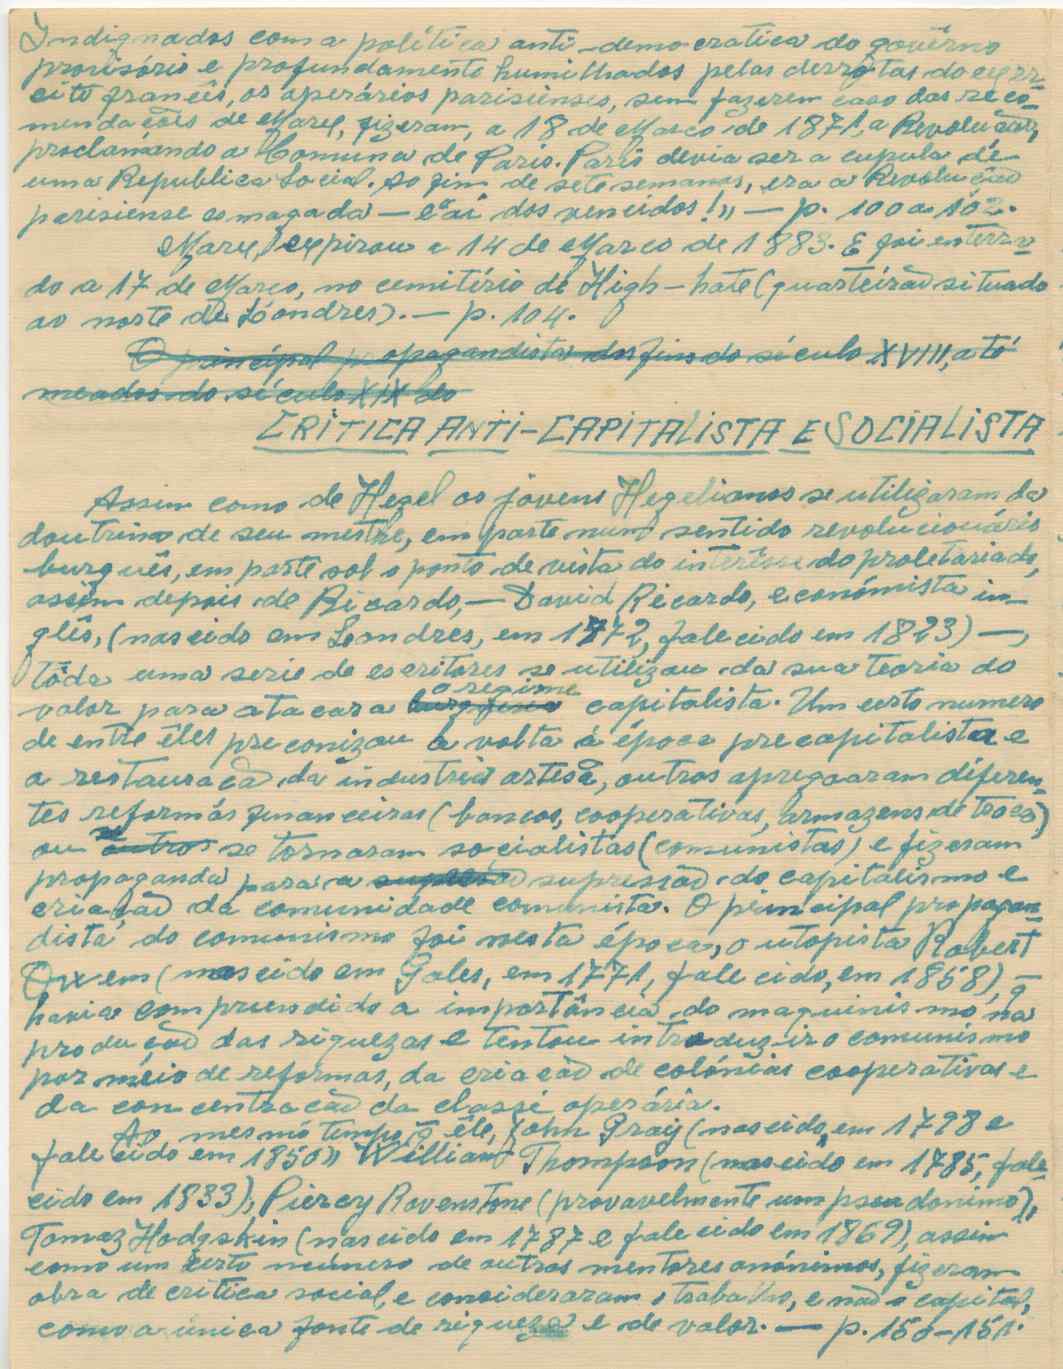 Indignados com a política anti-democratica do govêrno
provisório e profundamente humilhados pelas derrotas do exér-
cito francês, os operários parisienses, sem fazerem caso das reco-
mendações de Marx, fizeram, a 18 de Março de 1871, a Revolução,
proclamando a Comuna de Paris. Paris devia ser a cupula de
uma Republica Social. Ao fim de sete semanas, era a Revolução
parisiense esmagada — «aí dos vencidos!» — p. 100 a 102.
Marx, expirou a 14 de Março de 1883. E foi enterra-
do a 17 de Março, no cemitério de High-hate (quarteirão situado
ao norte de Londres). — p. 104.
O principal propagandista dos fins do século XVIII, até
meados do século XIX do
CRÍTICA ANTI-CAPITALISTA E SOCIALISTA
Assim como de Hegel os jovens Hegelianos se utilizaram da
doutrina de seu mestre, em parte num sentido revolucionário
burguês, em parte sob o ponto de vista do interêsse do proletariado,
assim depois de Ricardo, — David Ricardo, económista in-
glês, (nascido em Londres, em 1772, falecido em 1823) —,
tôda uma serie de escritores se utilizou da sua teoria do
valor para atacar o regime capitalista. Um certo numero
de entre êles preconizou a volta á época precapitalista e
a restauração da industria artesã, outros apregoaram diferen-
tes reformas financeiras (bancos, cooperativas, armazens de troca)
ou outros se tornaram socialistas (comunistas) e fizeram
propaganda para a supressão do capitalismo e
criação da comunidade comunista. O principal propagan-
dista do comunismo foi nesta época, o utopista Robert
Owen (nascido em Gales, em 1771, falecido, em 1858), q
havia compreendido a importância do maquinismo na
produção das riquezas e tentou introduzir o comunismo
por meio de reformas, da criação de colónias cooperativas e
da concentração da classe operária.
Ao mesmo tempo q êle, John Gray (nascido, em 1798 e
falecido em 1850) William Thompson (nascido em 1785, fale-
cido em 1833), Piercy Ravenstone (provavelmente um pseudonimo),
Tomaz Hodgskin (nascido em 1787 e falecido em 1869), assim
como um certo numero de outros mentores anónimos, fizeram
obra de critica social, e consideraram o trabalho, e não o capital,
como a única fonte de riqueza e de valor. — p. 150-151.